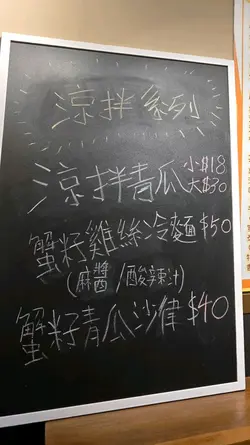 涼拌系列
涼拌青瓜 小$18
大$30
蟹籽雞絲冷麵 $50
(麻醬/酸辣汁)
蟹籽青瓜沙律 $40